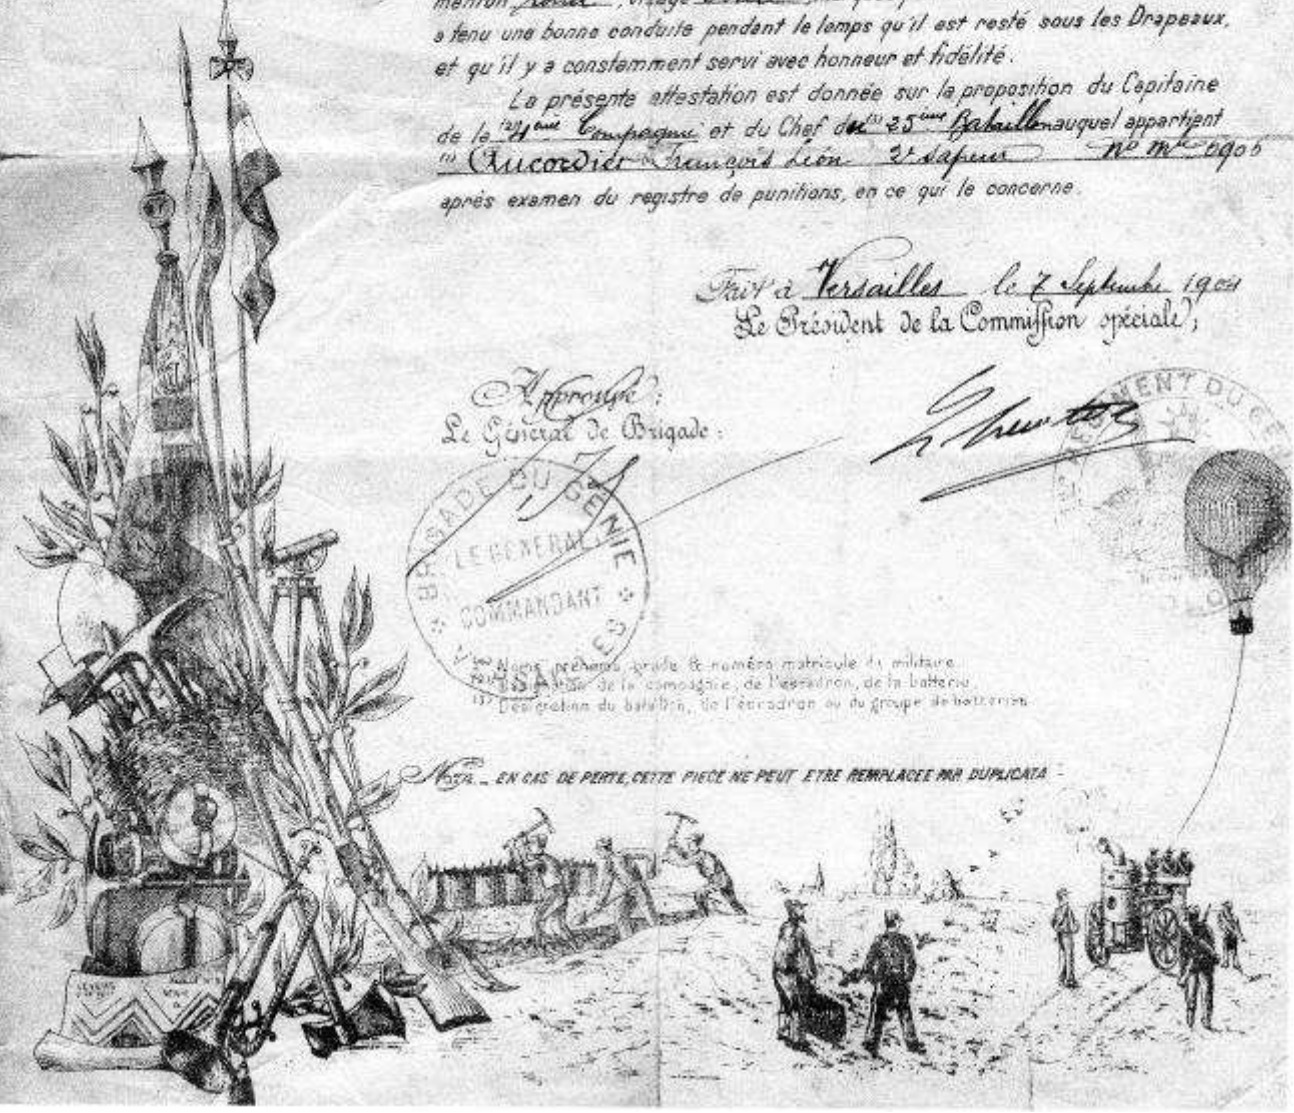 menton , visage
a tenu une bonne conduite pendant le temps qu'il est resté sous les Drapeaux,
et qu'il y a constamment servi avec honneur et fidélité.
La présente attestation est donnée sur la proposition du Capitaine
de la (2) 4eme Compagnie et du Chef du (3) 25eme Bataillon auquel appartient
(1) Aucordier François Léon 2e sapeur no mle 0906
après examen du registre de punitions, en ce qui le concerne.
Fait à Versailles le 7 Septembre 1904
Le Président de la Commission spéciale,
Approuvé:
Le Général de Brigade:
REGIMENT DU GENIE
BRIGADE DU GENIE
LE GENERAL
COMMANDANT
VERSAILLES
(1) Noms, prénoms, grade & numéro matricule du militaire.
(2) Désignation de la compagnie, de l'escadron, de la batterie.
(3) Désignation du bataillon, de l'escadron ou du groupe de batteries.
Nota _ EN CAS DE PERTE, CETTE PIECE NE PEUT ETRE REMPLACEE PAR DUPLICATA